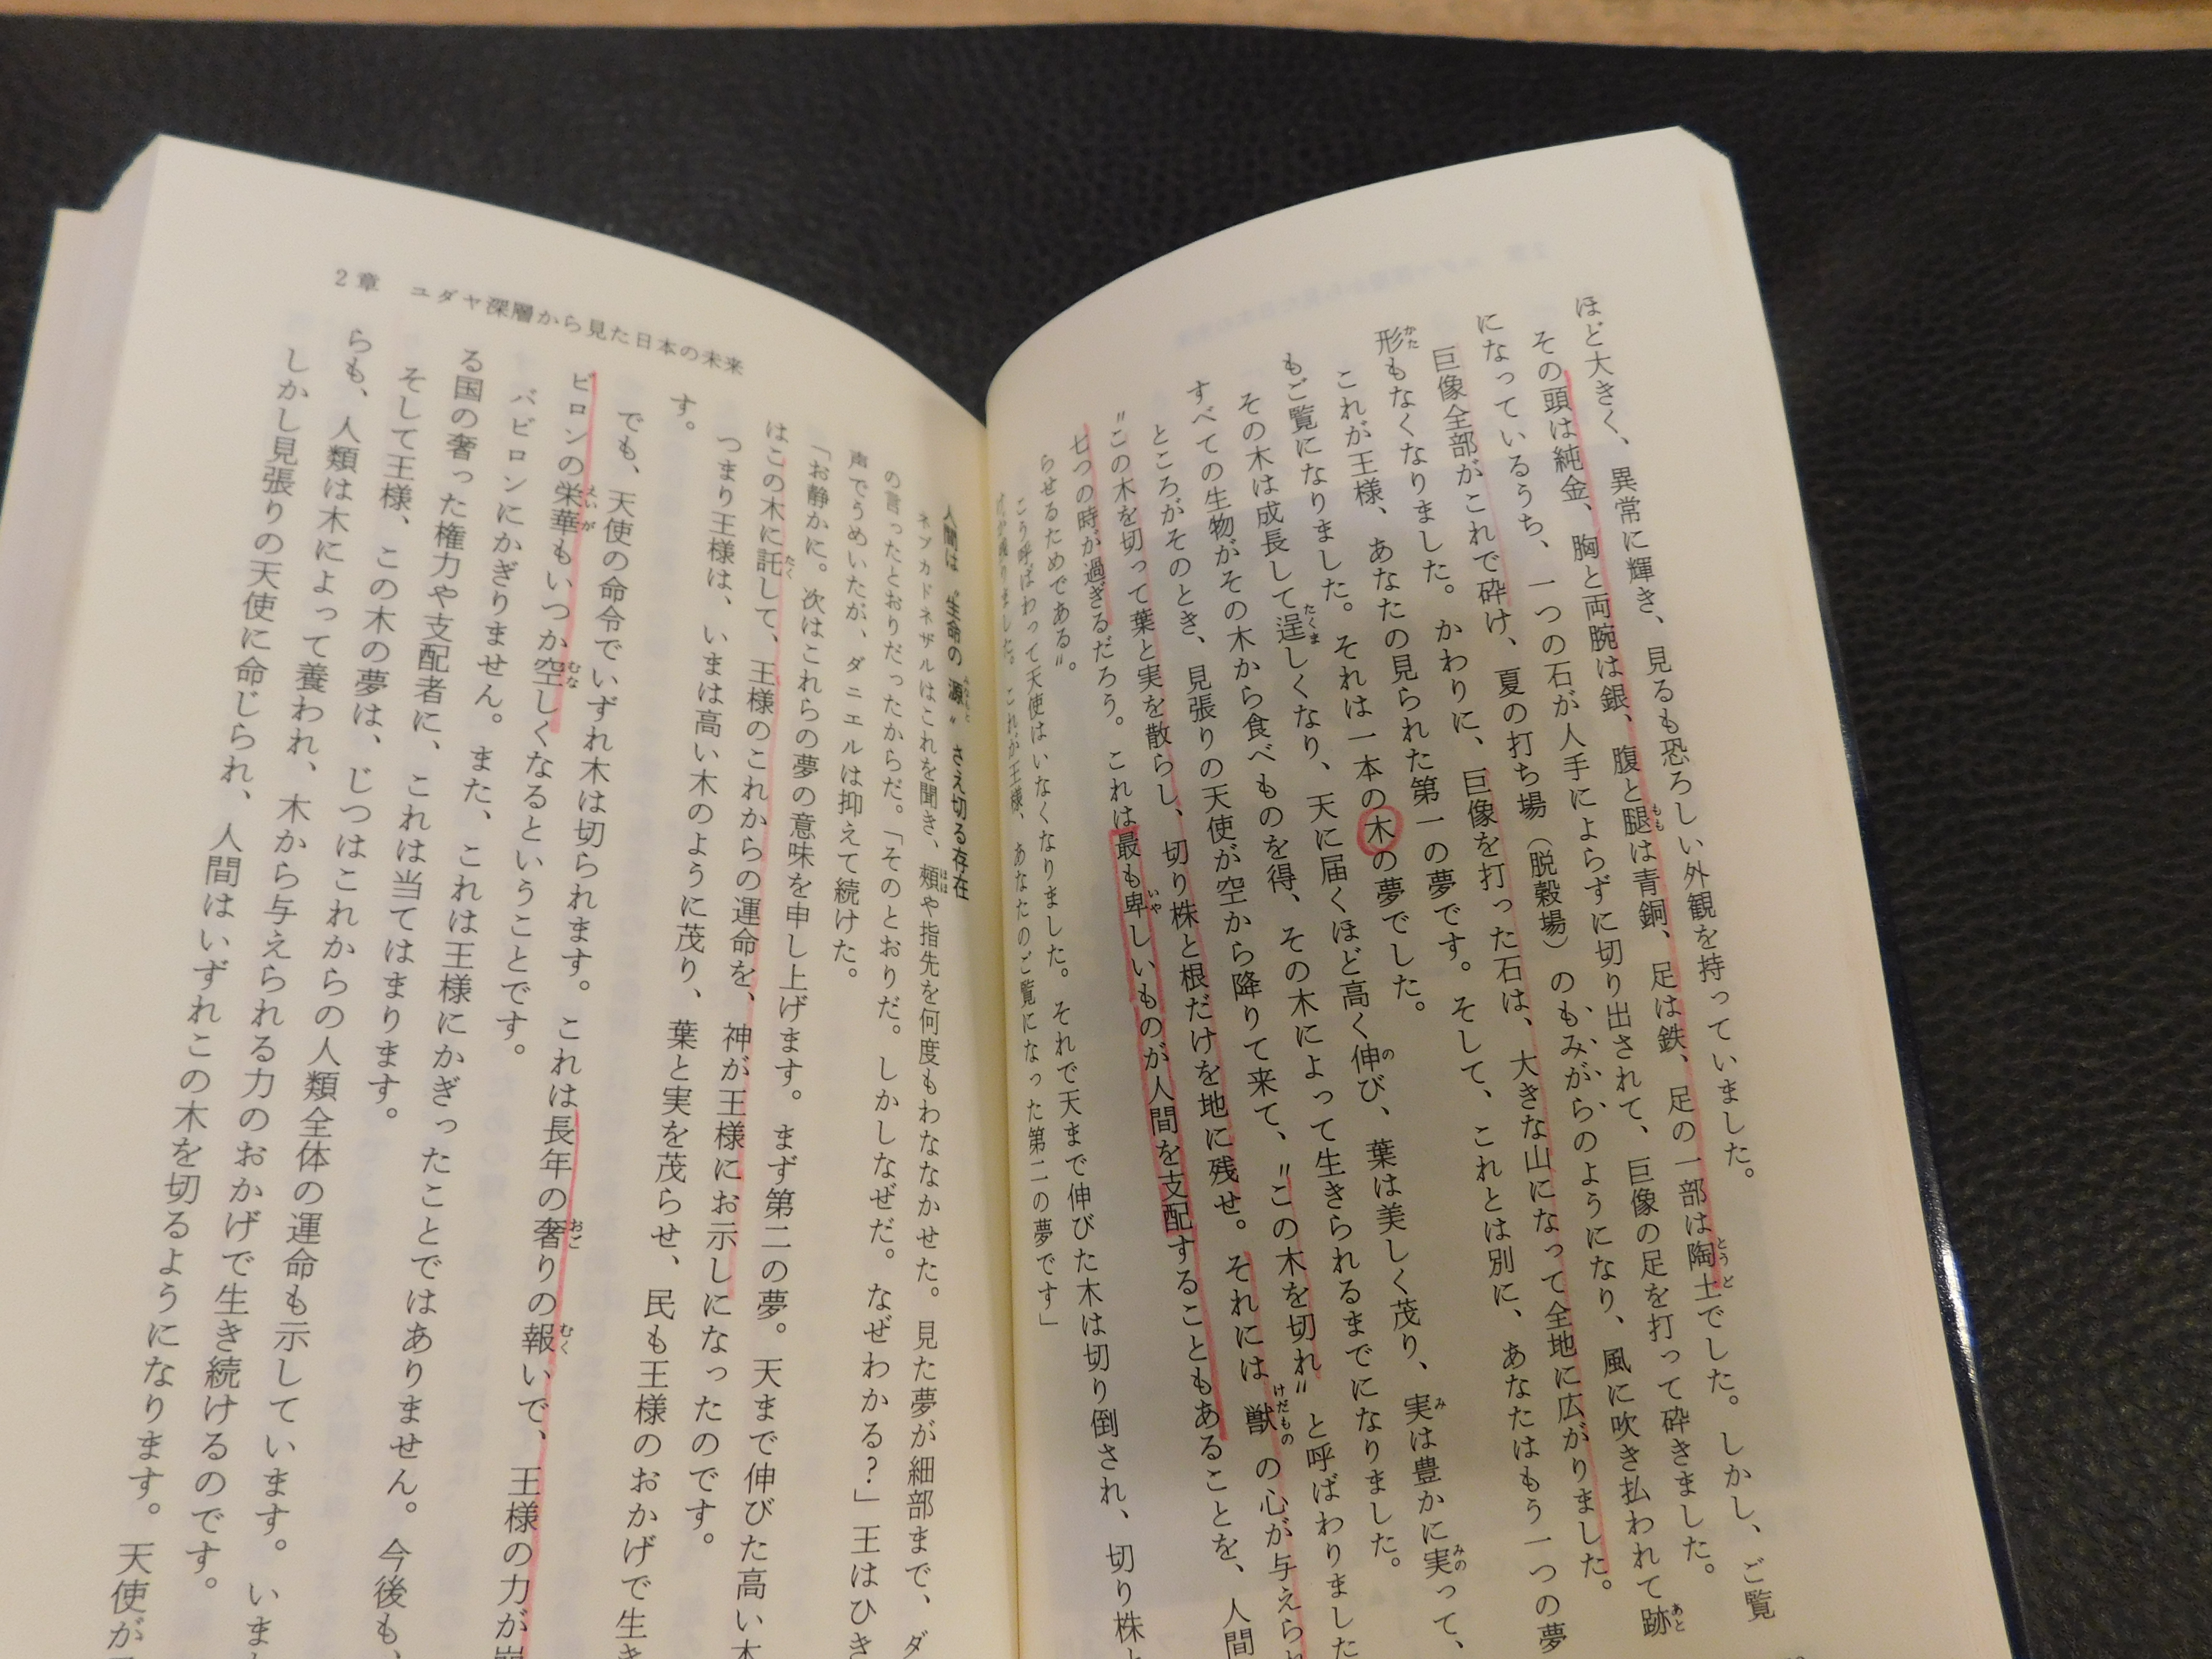 ほど大きく、異常に輝き、見るも恐ろしい外観を持っていました。
その頭は純金、胸と両腕は銀、腹と腿は青銅、足は鉄、足の一部は陶土でした。しかし、ご覧
になっているうち、一つの石が人手によらずに切り出されて、巨像の足を打って砕きました。
巨像全部がこれで砕け、夏の打ち場（脱穀場）のもみがらのようになり、風に吹き払われて跡
形もなくなりました。かわりに、巨像を打った石は、大きな山になって全地に広がりました。
これが王様、あなたの見られた第一の夢です。そして、これとは別に、あなたはもう一つの夢
もご覧になりました。それは一本の木の夢でした。
その木は成長して逞しくなり、天に届くほど高く伸び、葉は美しく茂り、実は豊かに実って、
すべての生物がその木から食べものを得、その木によって生きられるまでになりました。
ところがそのとき、見張りの天使が空から降りて来て、〝この木を切れ〟と呼ばわりました
〝この木を切って葉と実を散らし、切り株と根だけを地に残せ。それには獣の心が与えられ
七つの時が過ぎるだろう。これは最も卑しいものが人間を支配することもあることを、人間
らせるためである〟。
こう呼ばわって天使はいなくなりました。それで天まで伸びた木は切り倒され、切り株と
けが残りました。これが王様、あなたのご覧になった第二の夢です」
2章　ユダヤ深層から見た日本の未来
人間は〝生命の源〟さえ切る存在
ネブカドネザルはこれを聞き、頬や指先を何度もわななかせた。見た夢が細部まで、ダ
の言ったとおりだったからだ。「そのとおりだ。しかしなぜだ。なぜわかる？」王はひき
声でうめいたが、ダニエルは抑えて続けた。
「お静かに。次はこれらの夢の意味を申し上げます。まず第二の夢。天まで伸びた高い木
はこの木に託して、王様のこれからの運命を、神が王様にお示しになったのです。
つまり王様は、いまは高い木のように茂り、葉と実を茂らせ、民も王様のおかげで生き
す。
でも、天使の命令でいずれ木は切られます。これは長年の奢りの報いで、王様の力が崩
ビロンの栄華もいつか空しくなるということです。
バビロンにかぎりません。また、これは王様にかぎったことではありません。今後も、
る国の奢った権力や支配者に、これは当てはまります。
そして王様、この木の夢は、じつはこれからの人類全体の運命も示しています。いまし
らも、人類は木によって養われ、木から与えられる力のおかげで生き続けるのです。
しかし見張りの天使に命じられ、人間はいずれこの木を切るようになります。天使が